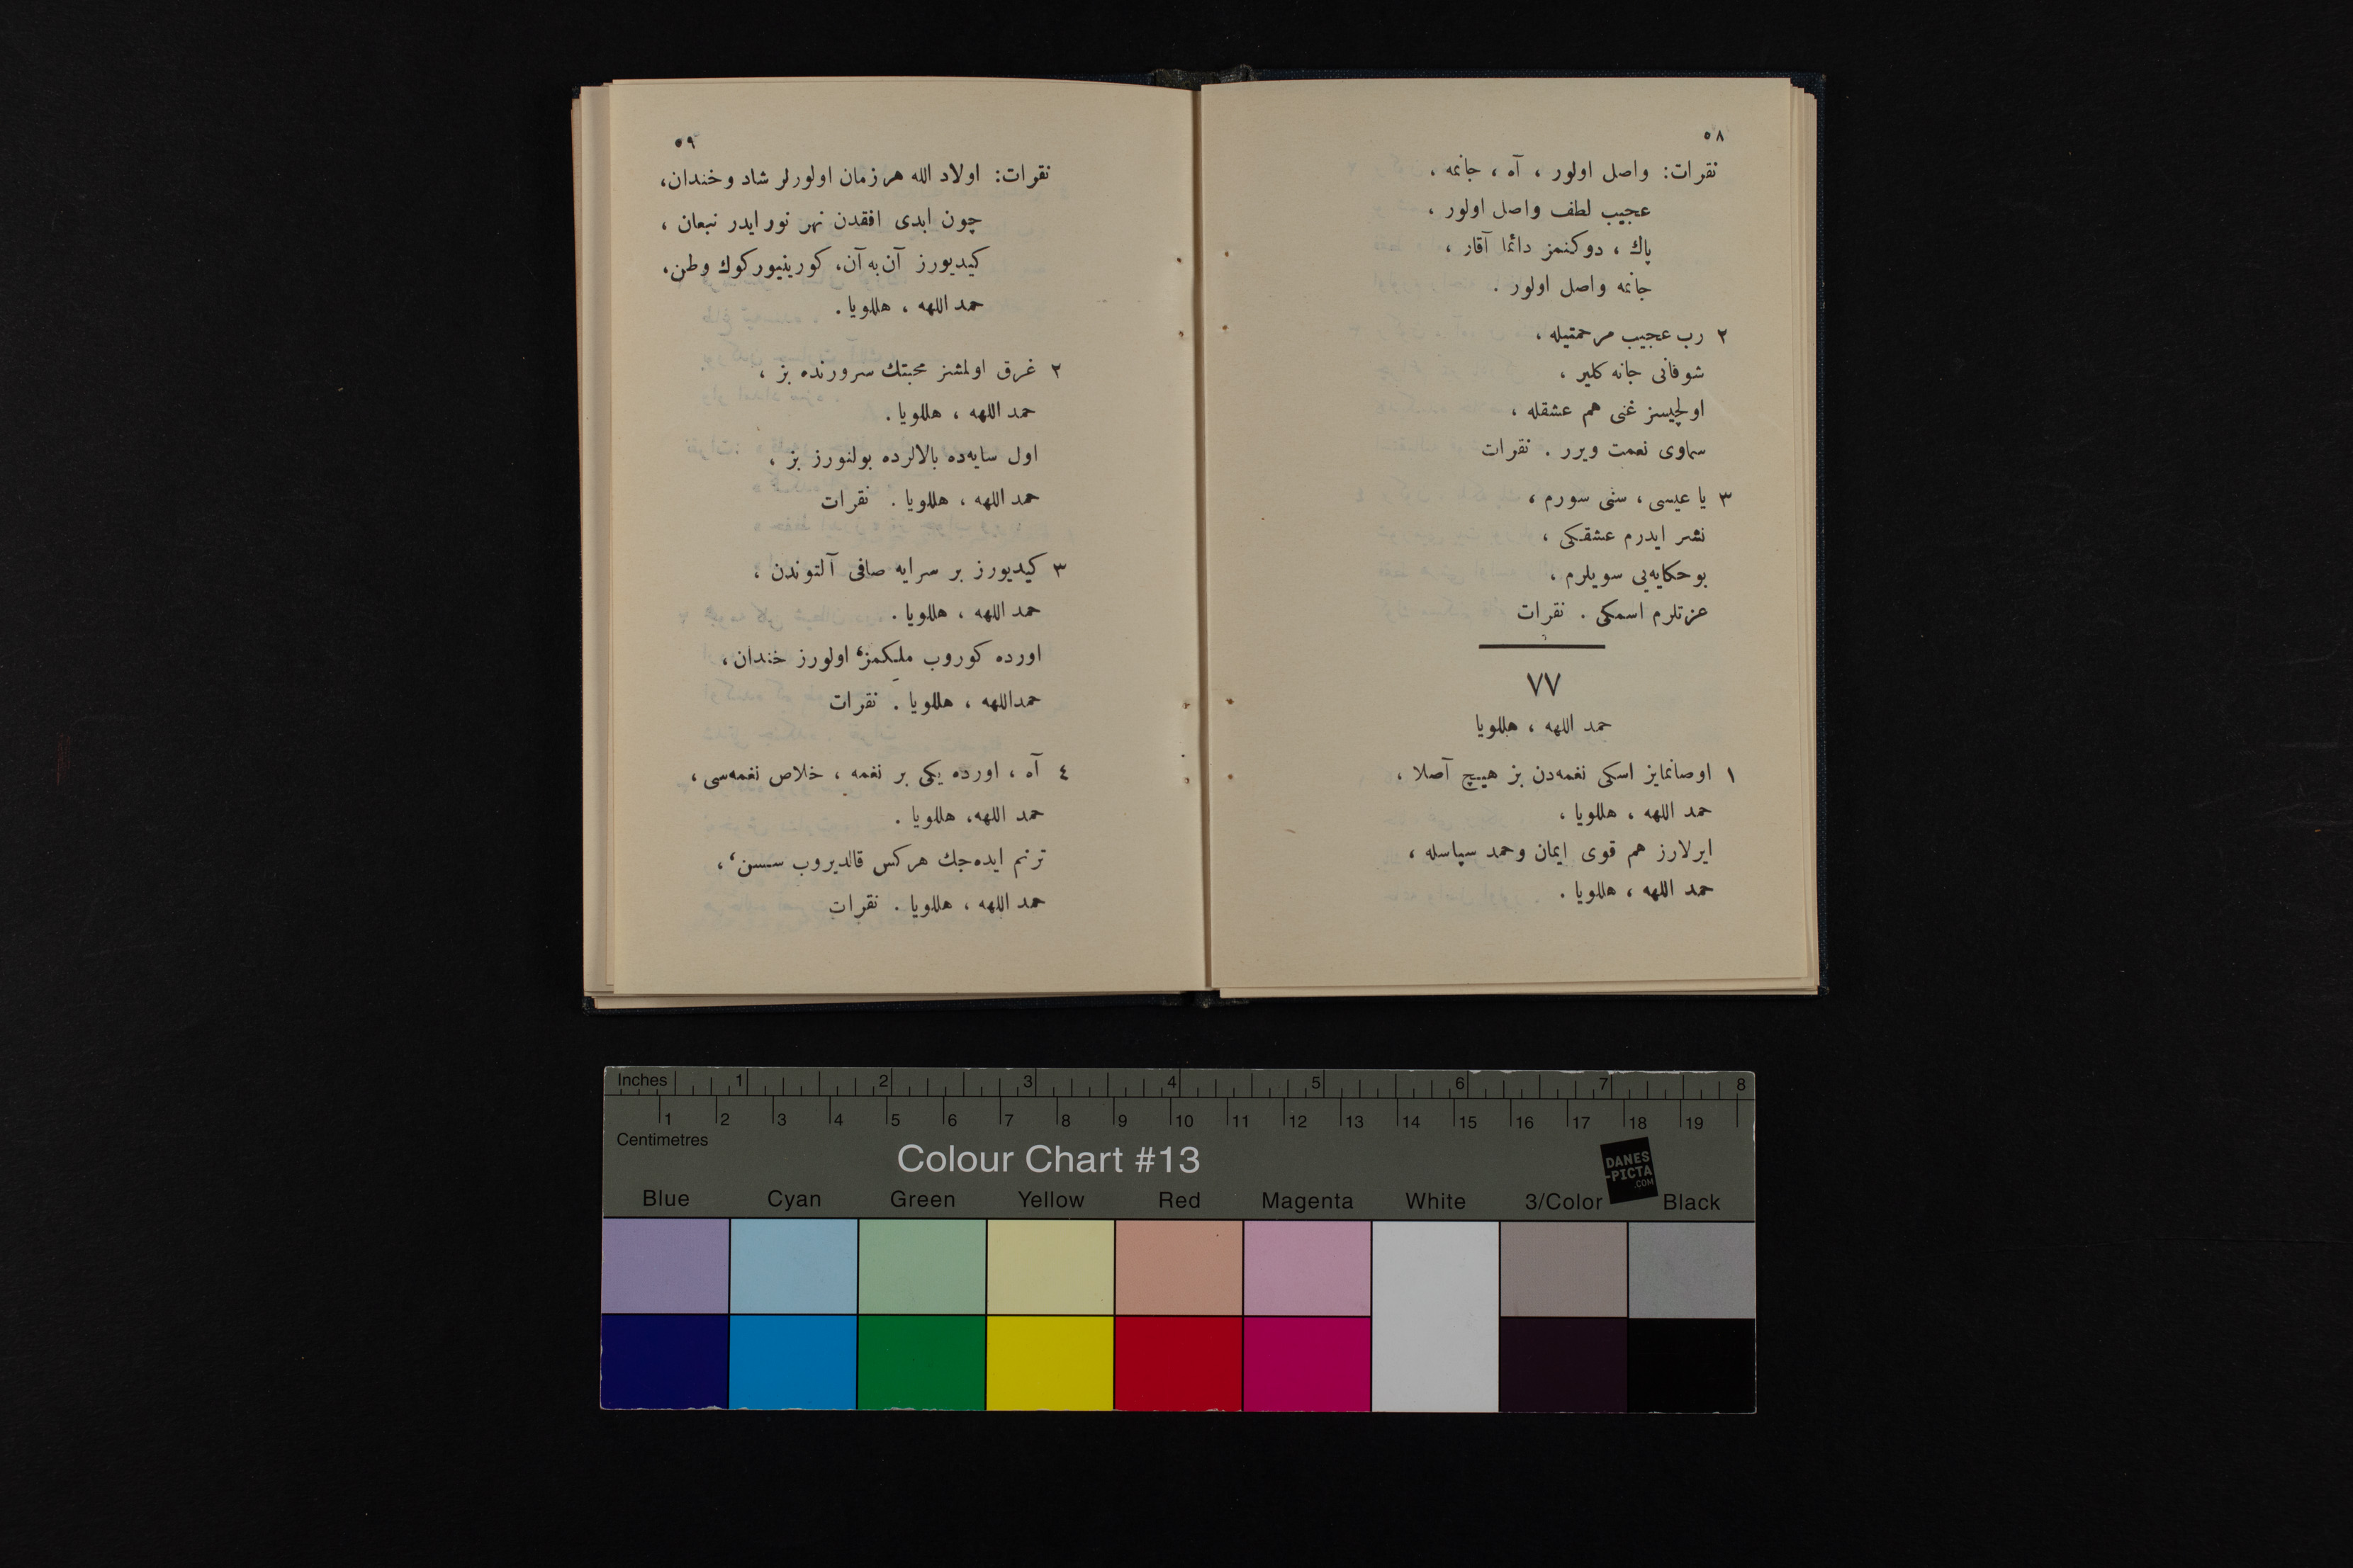 ٥٨
نقرات: واصل اولور ، آه ، جانمه ،
عجیب لطف واصل اولور ،
پاك ، دوكنمز دائما آقار ،
جانمه واصل اولور .
٢ رب عجیب مرحمتیله ،
شوفانی جانه كلیر ،
اولچیسز غنی هم عشقله ،
سماوی نعمت ویرر . نقرات
٣ یا عیسی ، سنی سورم ،
نشر ایدرم عشقكی ،
بوحكایه‌یی سویلرم ،
عزتلرم اسمكی . نقرات
٧٧
حمد اللهه ، هللویا
١ اوصانمایز اسكی نغمه‌دن بز هیچ آصلا ،
حمد اللهه ، هللویا ،
ایرلارز هم قوی ایمان وحمد سپاسله ،
حمد اللهه ، هللویا .
٥٩
نقرات: اولاد الله هرزمان اولورلر شاد وخندان،
چون ابدی افقدن نهر نور ایدر نبعان ،
كیدیورز آن‌به‌آن، كورینیوركوك وطن،
حمد اللهه ، هللویا .
٢ غرق اولمشز محبتك سرورنده بز ،
حمد اللهه ، هللویا .
اول سایه‌ده بالالرده بولنورز بز ،
حمد اللهه ، هللویا . نقرات
٣ كیدیورز بر سرایه صافی آلتوندن ،
حمد اللهه ، هللویا .
اورده كوروب ملیكمز‘ اولورز خندان،
حمداللهه ، هللویا . نقرات
٤ آه ، اورده یكی بر نغمه ، خلاص نغمه‌سی ،
حمد اللهه، هللویا .
ترنم ایده‌جك هركس قالدیروب سسن‘ ،
حمد اللهه ، هللویا . نقرات
Inches 1 2 3 4 5 6 7 8
1 2 3 4 5 6 7 8 9 10 11 12 13 14 15 16 17 18 19
Centimetres
Colour Chart #13
DANES
-PICTA
.COM
Blue Cyan Green Yellow Red Magenta White 3/Color Black